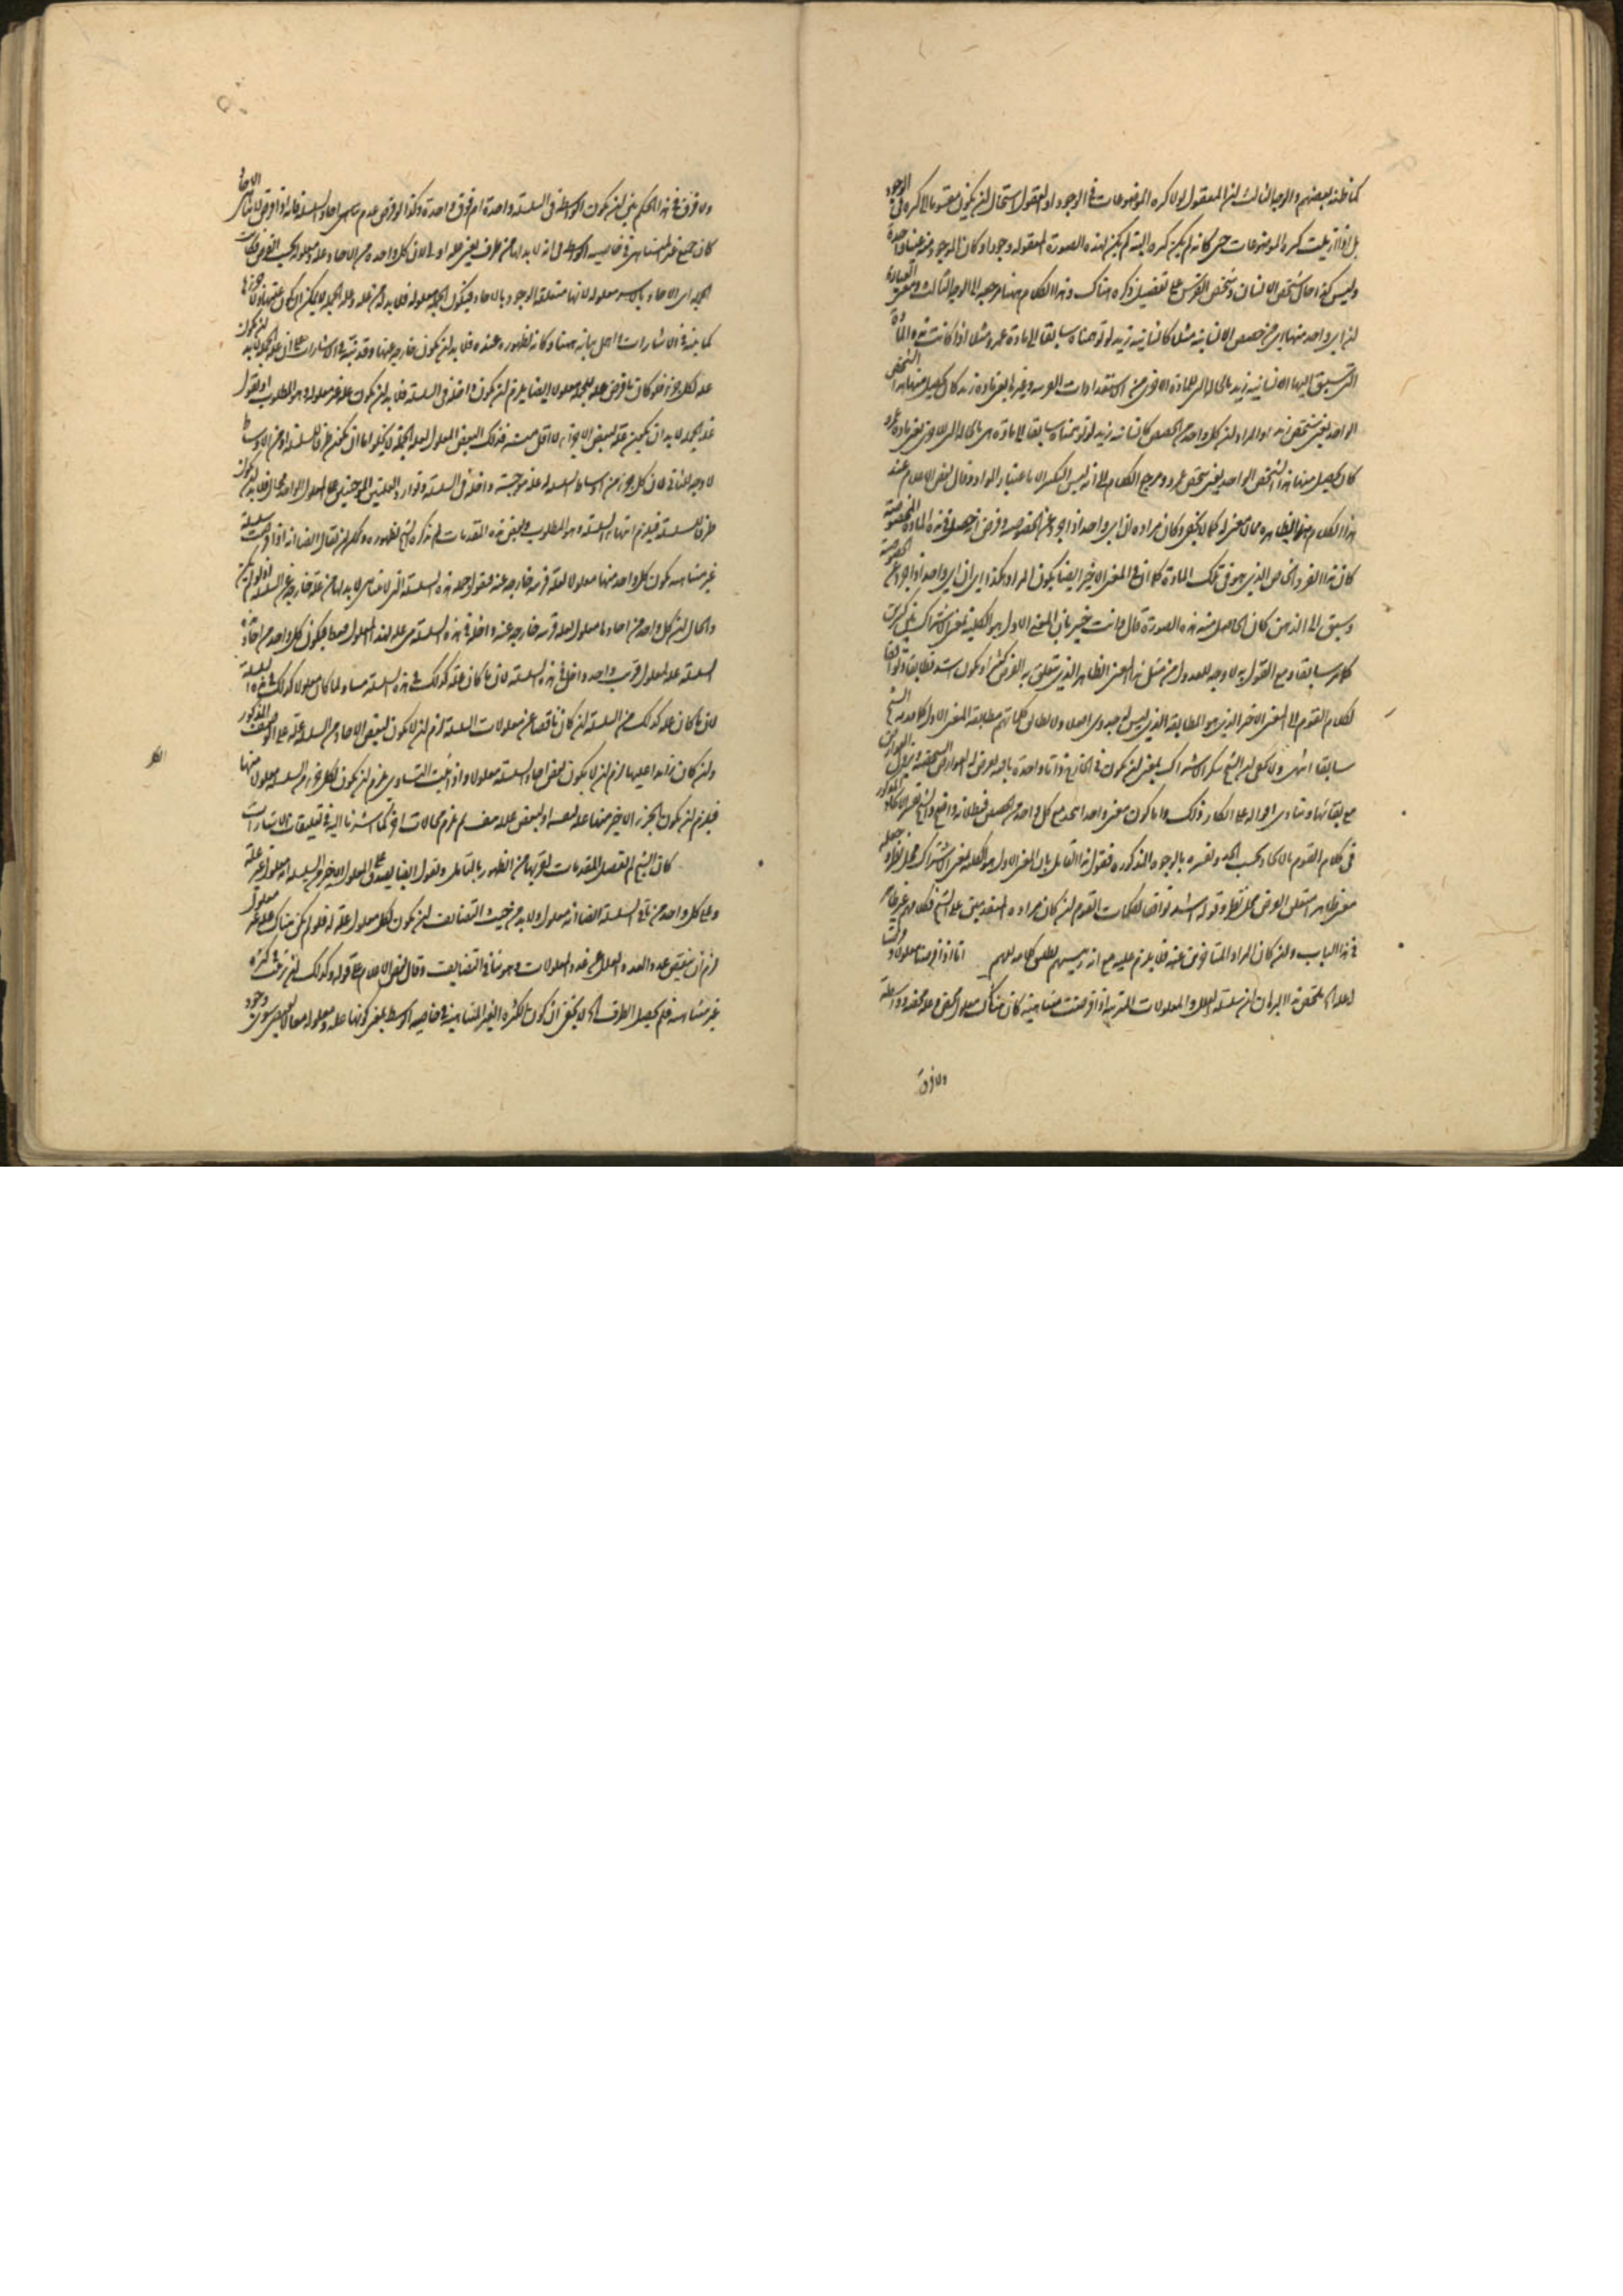 كما ظنه بعضهم والوجه الثالث ان المعقول لولا كثرة الموضوعات في الوجود او العقول استحال ان يكون مقسوما الى كثرة في الوجود
بل اذا ازيلت كثرة الموضوعات حتى كانه لم يكن كثرة البتة لم يكن لهذه الصورة المعقولة وجود او كان الموجود منه عينا واحدة
وليس كذا حال شخص الانسان وشخص الفرس على تفصيل ذكره هناك وهذا الكلام ههنا مرجعه الى الوجه الثالث ومعنى العبارة
ان اي واحد منها اي من حصص الانسانية مثلا كانسانية زيد لو توهمناه سابقا الى مادة عمرو مثلا اذا كانت
التي سبق اليها انسانية زيد بالحالة التي للمادة الاخرى من الاستعدادات
الواحد يعني شخص زيد او المراد ان كل واحد من الحصص كانسانية زيد لو توهمناه سابقا الى مادة هي بالحالة التي للاخرى يعني مادة عمرو
كان يحصل منها هذا الشخص الواحد يعني شخص عمرو ومرجع الكلام الى انه ليس التكثر الا باعتبار المواد وقال بعض الاعلام عند
هذا الكلام لا معنى له كما لا يخفى وكان مراده ان اي واحد اذا جرد عن الخصوصية وفرض انه حصل في هذه المادة المخصوصة
كان هذا الفرد الخاص الذي هو في تلك المادة كما ان في المعنى الاخير ايضا يكون المراد هكذا اي ان اي واحد اذا جرد عن الخصوصية
وسبق الى الذهن كان الحاصل منه هذه الصورة قال وانت خبير بان المعنى الاول هو الكلية بمعنى الاشتراك بين كثيرين
كلام سابقا ومع القول به لا وجه للعدول من مثل هذا المعنى الظاهر الذي يتعلق به الغرض كثيرا ويكون اشد تطابقا وتوافقا
لكلام القوم الى المعنى الاخر الذي هو المطابقة الذي ليس له جدوى اصلا ولا يطابق كلماتهم مطابقة المعنى الاول كما مر من الشيخ
سابقا انتهى ولا يخفى ان الشيخ ينكر الاشتراك بمعنى ان يكون في الخارج ذاتا واحدة بالعدد يعرض له العوارض المشخصة ويزول العوارض
مع بقائها وينادي اقواله على انكار ذلك واما كون معنى واحد اتحد مع كل واحد من الحصص فبطلانه واضح والشيخ
في كلام القوم بالاتحاد بحسب الحد وفسره بالوجوه المذكورة فقول هذا القائل بان المعنى الاول هو الكلية بمعنى الاشتراك محل نظر وجعله
معنى ظاهرا يتعلق الغرض محل نظر وقوله اشد توافقا لكلمات القوم ان كان مراده المتقدمين على الشيخ فكلامهم غير ظاهر
في هذا الباب وان كان المراد المتاخرين عنه فلا يلزم عليه مع انه رئيسهم تطبيق كلامه لهم انا اذا فرضنا معلولا
له علة ملخص هذا البرهان ان سلسلة العلل والمعلولات المترتبة اذا فرضت متناهية كان هناك معلول محض وعلة محضة وواسطة
ولا فرق
ولا فرق في هذا الحكم بين ان يكون الواسطة في السلسلة واحدة ام فوق واحدة وكذا لو فرض عدم تناهي احاد السلسلة فانه اذا فرض لا تناهي الاحاد
كان جميع غير المتناهي في خاصية الواسطة في انه لا بد لها من طرف يعني علة اولى لان كل واحدة من الاحاد علة ومعلولة بحسب الفرض فكانت
الجملة اي الاحاد بالاسر معلولة لانها متعلقة الوجود بالاحاد فيكون الجملة معلولة فلا بد لها من علة وعلة الجملة لا يمكن ان يكون
كما بينه في الاشارات واهمل بيانه ههنا وكانه لظهوره عنده فلا بد ان يكون خارجة عنها وقد بين في الاشارات على ان علة الجملة لا بد ان يكون
علة لكل جزء فلو كان ما فرض علة للجملة معلولا ايضا يلزم ان يكون داخلا في السلسلة فلا بد ان يكون علة غير معلولة وهو المطلوب او نقول
علة الجملة لا بد ان يكون علة لبعض الاجزاء لا اقل منه فذلك البعض المعلول لعلة الجملة لا يخلو اما ان يكون طرفا للسلسلة او من الاوساط
لا وجه للثاني لان كل جزء من اوساط السلسلة له علة موجبة داخلة في السلسلة وتوارد العلتين الموجبتين على المعلول الواحد محال فلا بد ان يكون
طرفا للسلسلة فيلزم انتهاء السلسلة وهو المطلوب وبعض هذه المقدمات لم يذكره الشيخ لظهوره ويمكن ان يقال ايضا انه اذا فرضت سلسلة
غير متناهية يكون كل واحد منها معلولا لعلة قريبة خارجة عنه فنقول جملة هذه السلسلة التي لا تتناهى لا بد لها من علة خارجة عن السلسلة اذ لو لم يكن
والحال ان كل واحد من احادها معلول لعلة قريبة خارجة عنه داخلة في هذه السلسلة هي علة لهذا المعلول فقط فيكون كل واحد من احاد
السلسلة علة لمعلول قريب واحد داخل في هذه السلسلة فان ما كان علة كذلك في هذه السلسلة مساو لما كان معلولا كذلك في هذه السلسلة
لان ما كان علة كذلك من السلسلة ان كان ناقصا عن معلولات السلسلة لزم ان لا يكون لبعض الاحاد من السلسلة علة على الوصف المذكور
وان كان زائدا عليها لزم ان لا يكون بعض احاد السلسلة معلولا واذا ثبت التساوي يلزم ان يكون لكل جزء من السلسلة معلول منها
فيلزم ان يكون الجزء الاخير منها علة لنفسه او لبعض علله هف ثم يلزم محالات اخر كما اشرنا اليه في تعليقات الاشارات
كان الشيخ لم يفصل المقدمات لقربها من الظهور بالتامل ونقول ايضا يصدق على المعلول الاخير من السلسلة انه معلول غير علة
وعلى كل واحد من باقي السلسلة ايضا انه معلول ولا بد من حيث التضايف ان يكون لكل معلول علة له فلو لم يكن هناك علة غير معلول
لزم ان ينقص عدد العلل عن عدد المعلولات وهو ينافي التضايف وقال بعض الاعلام على قوله وكذلك ان ترتب في كثرة
غير متناهية فلم يحصل الطرف اي لا يخفى ان كون الكثرة الغير المتناهية في خاصية الواسطة بمعنى كونها علة ومعلولة معا لا يقتضي سوى وجود